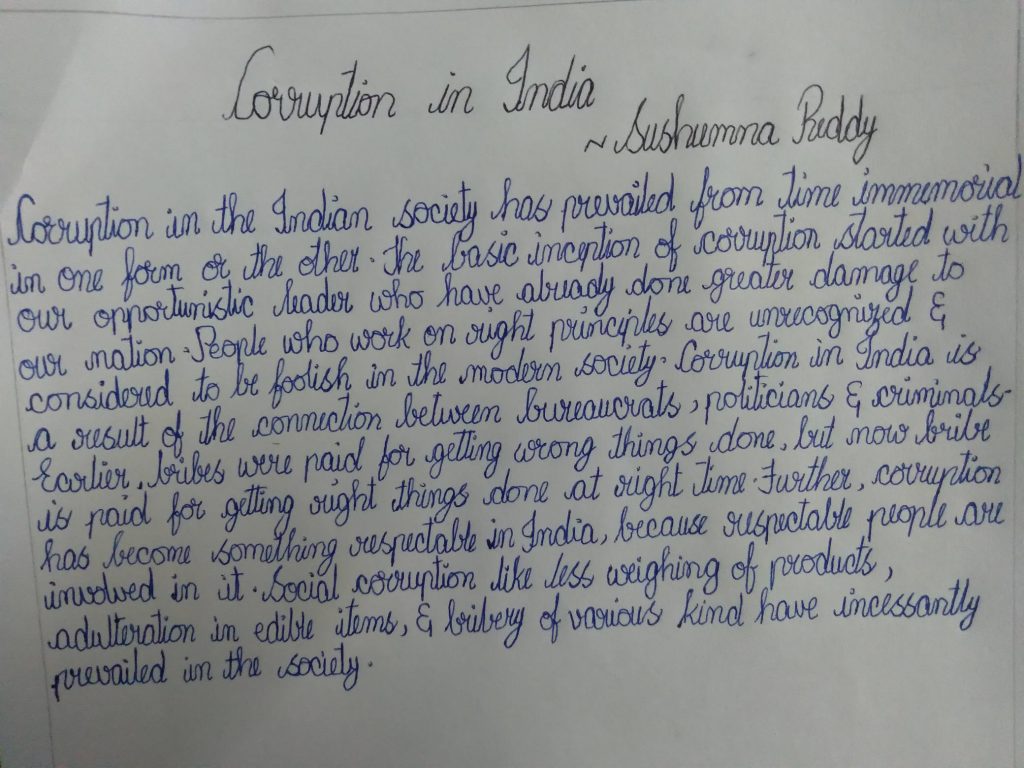 Corruption in India
~ Sushumna Reddy
Corruption in the Indian society has prevailed from time immemorial
in one form or the other. The basic inception of corruption started with
our opportunistic leader who have already done greater damage to
our nation. People who work on right principles are unrecognized &
considered to be foolish in the modern society. Corruption in India is
a result of the connection between bureaucrats, politicians & criminals.
Earlier, bribes were paid for getting wrong things done, but now bribe
is paid for getting right things done at right time. Further, corruption
has become something respectable in India, because respectable people are
involved in it. Social corruption like less weighing of products,
adulteration in edible items, & bribery of various kind have incessantly
prevailed in the society.